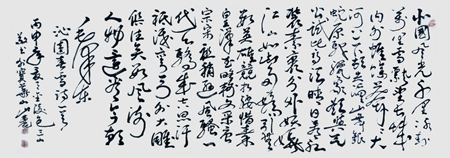 北國風光千里冰封
萬里雪飄望長城
内外惟餘莽莽大
河上下頓失滔滔山舞銀
蛇原馳蠟象欲與天
公試比高須晴日看紅
裝素裹分外妖嬈
江山如此多嬌引無
數英雄競折腰惜秦
皇漢武略輸文采唐
宗宋祖稍遜風騷一
代天驕成吉思汗
只識彎弓射大雕
俱往矣數風流
人物還看今朝
毛澤東
沁園春雪詩一首
丙申年夏